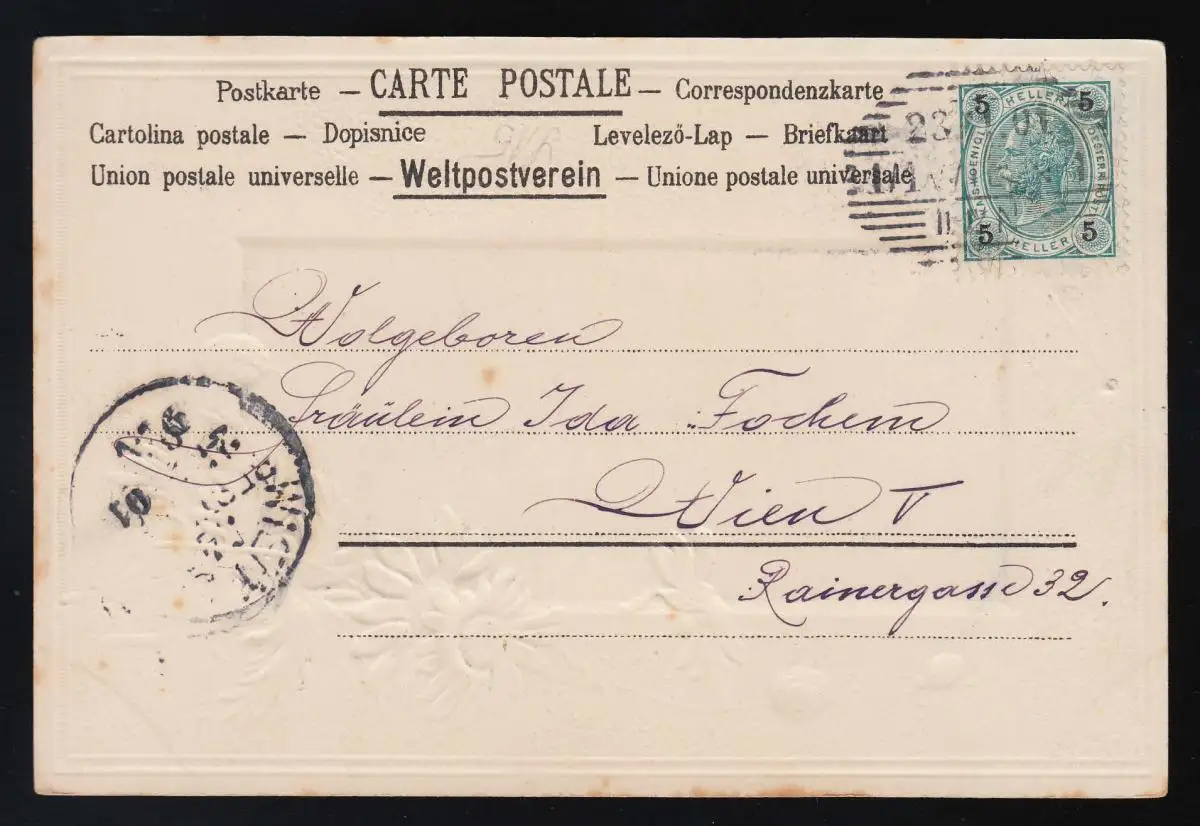 Postkarte – CARTE POSTALE – Correspondenzkarte
Cartolina postale – Dopisnice Levelező-Lap – Briefkaart
Union postale universelle – Weltpostverein – Unione postale universale
5 HELLER 5
5 HELLER 5
23. 01
Wolgeboren
Fräulein Ida Fochem
Wien V
Rainergasse 32.
01